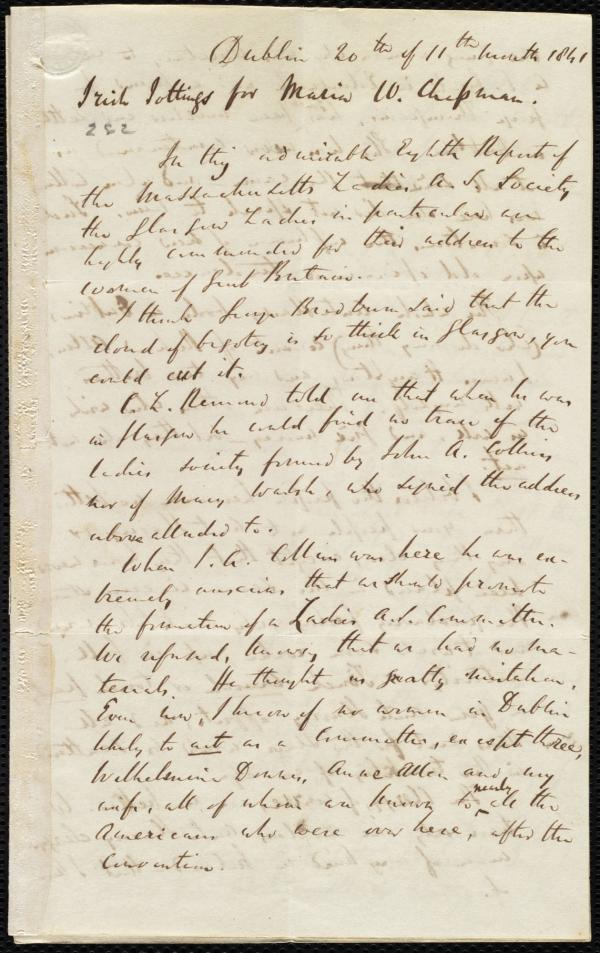 Dublin 20th of 11th month 1841
Irish Jottings for Maria W. Chapman.
252
In thy admirable Eighth Report of
the Massachusetts Ladies A. S. Society
the Glasgow Ladies in particular are
highly commended for their address to the
women of Great Britain.
I think George Bradburn said that the
cloud of bigotry is so thick in Glasgow, you
could cut it.
C. L. Remond told me that when he was
in Glasgow he could find no trace of the
ladies society formed by John A. Collins
nor of Mary Walsh, who signed the address
above alluded to.
When J. A. Collins was here he was ex-
tremely anxious that we should promote
the formation of a Ladies A.S. Committee.
We refused, knowing that we had no ma-
terials. He thought us greatly mistaken.
Even now, I know of no women in Dublin
likely to act as a Committee, except three,
Wilhelmina Downes, Anne Allen and my
wife, all of whom are known to nearly all the
Americans who were over here, after the
Convention.